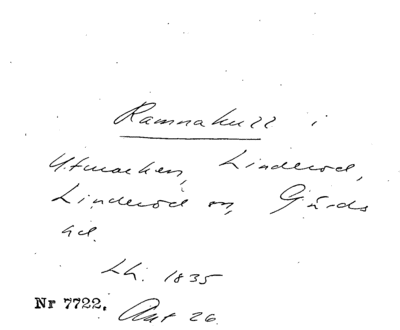 Ramnakull i
Utmarken, Linderöd,
Linderöd sn, Gärds
hd.
Lh. 1835
Nr 7722. Akt 26